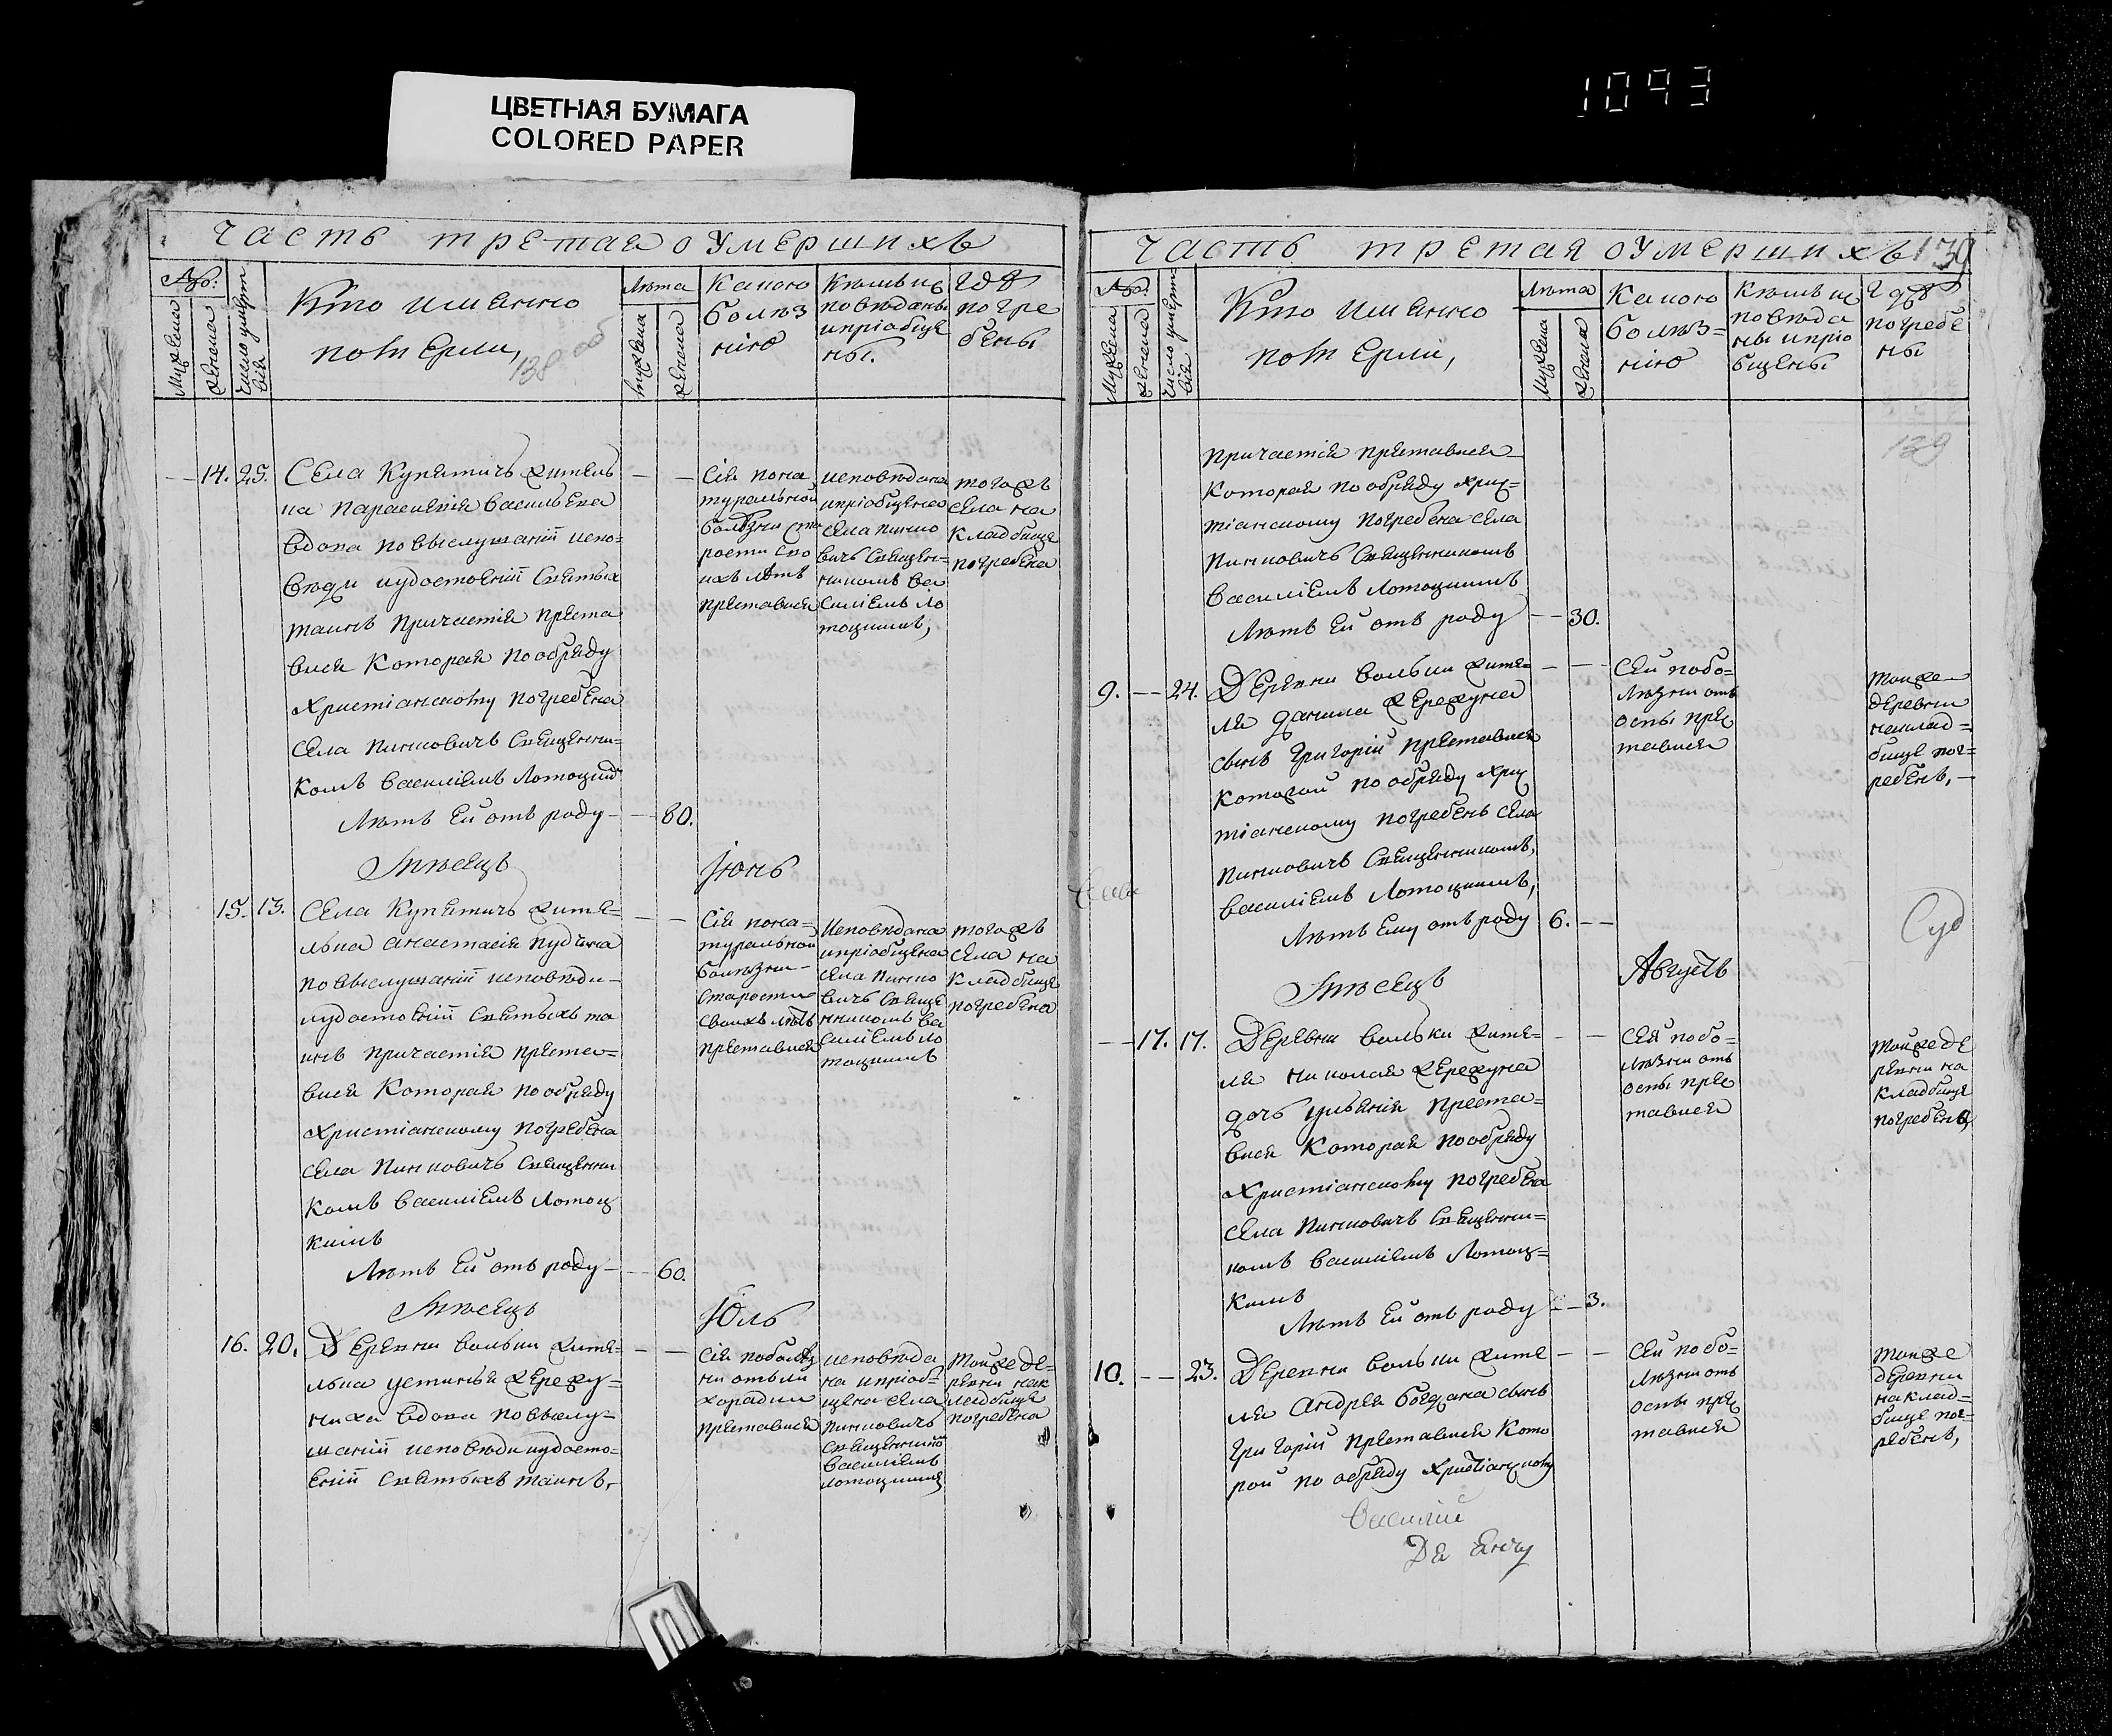 ЦВЕТНАЯ БУМАГА
COLORED PAPER
1093
Часть третая о умершихъ
№:
Мужеска
женска
Число умертвія
Кто имянно
померли,
138 об
Лѣта
мужеска
женска
Какою
болѣз
нію
Кѣмъ ис
повѣданы
и пріобще
ны.
гдѣ
погре
бены
14. 25.
Села Купятичъ житель
на Параскевія Васильева
вдова по выслушаніи испо=
вѣди и удостоеніи Святыхъ
таинъ Причастія преста
вися Которая по обряду
Христіанскому погребена
села Пинковичъ Священни=
комъ Василіемъ Лотоцким
Лѣтъ ей отъ роду — 80.
Сія пона
туральной
болѣзни ста
рости сво
ихъ лѣтъ
преставися
исповѣдана
и пріобщена
села Пинко
вичъ Священ=
никомъ Ва
силіемъ Ло
тоцкимъ,
тогожъ
села на
кладбище
погребена
Мѣсецъ Іюнь
15. 13.
Села Купятичъ жите=
льна Анастасія Пудчика
по выслушаніи исповѣди
и удостоеніи Святыхъ та
инъ причастія преста=
вися Которая по обряду
Христіанскому погребена
села Пинковичъ Священни
комъ Василіемъ Лотоц
кимъ
Лѣтъ ей отъ роду — 60.
Сія пона=
туральной
болѣзни
старости
своихъ лѣтъ
преставися
исповѣдана
и пріобщена
села Пинко
вичъ Свяще
нникомъ Ва
силіемъ Ло
тоцкимъ
тогожъ
села на
кладбище
погребена
Мѣсецъ Юль
16. 20.
Деревни Вольки жите=
льна Устинья Жережу=
ниха вдова по выслу=
шаніи исповѣди и удосто=
еніи Святыхъ таинъ,
Сія поболѣз
ни отъ ли
хорадки
преставися
исповѣда
на и пріоб=
щена села
Пинковичъ
Священнико
Василіемъ
Лотоцким
тойже де=
ревни нак
ладбище
погребена
Часть третая о умершихъ 139
№:
Мужеска
женска
Число умертвія
Кто имянно
померли,
Лѣта
Мужеска
женска
Какою
болѣз=
нію
Кѣмъ ис
повѣда
ны и пріо
бщены
гдѣ
погребе
ны
139
Причастія преставися
Которая по обряду Хрис=
тіанскому погребена села
Пинковичъ Священникомъ
Василіемъ Лотоцкимъ
Лѣтъ ей отъ роду — 30.
9. — 24.
Деревни Вольки жите=
ля Данила Жережуна
сынъ Григорій преставися
Которой по обряду Хрис
тіанскому погребенъ села
Пинковичъ Священникомъ,
Василіемъ Лотоцкимъ,
Лѣтъ ему отъ роду 6. —
Сей побо=
лѣзни отъ
оспы прес
тавися
тойже
деревни
на клад=
бище пог=
ребенъ, —
Мѣсецъ Августъ
17. 17.
Деревни Вольки жите=
ля Николая Жережуна
дочь Ульянія преста=
вися Которая по обряду
Христіанскому погребена
села Пинковичъ Священни=
комъ Василіемъ Лотоц=
кимъ
Лѣтъ ей отъ роду — 3.
Сей побо=
лѣзни отъ
оспы прес
тавися
тойже де
ревни на
кладбище
погребена,
10. — 23.
Деревни Вольки жите
ля Андрея Богдана сынъ
Григорій преставися Кото
рой по обряду Христіанскому
Сей побо=
лѣзни отъ
оспы прес
тавися
тойже
деревни
на клад=
бище пог=
ребенъ,
Василій